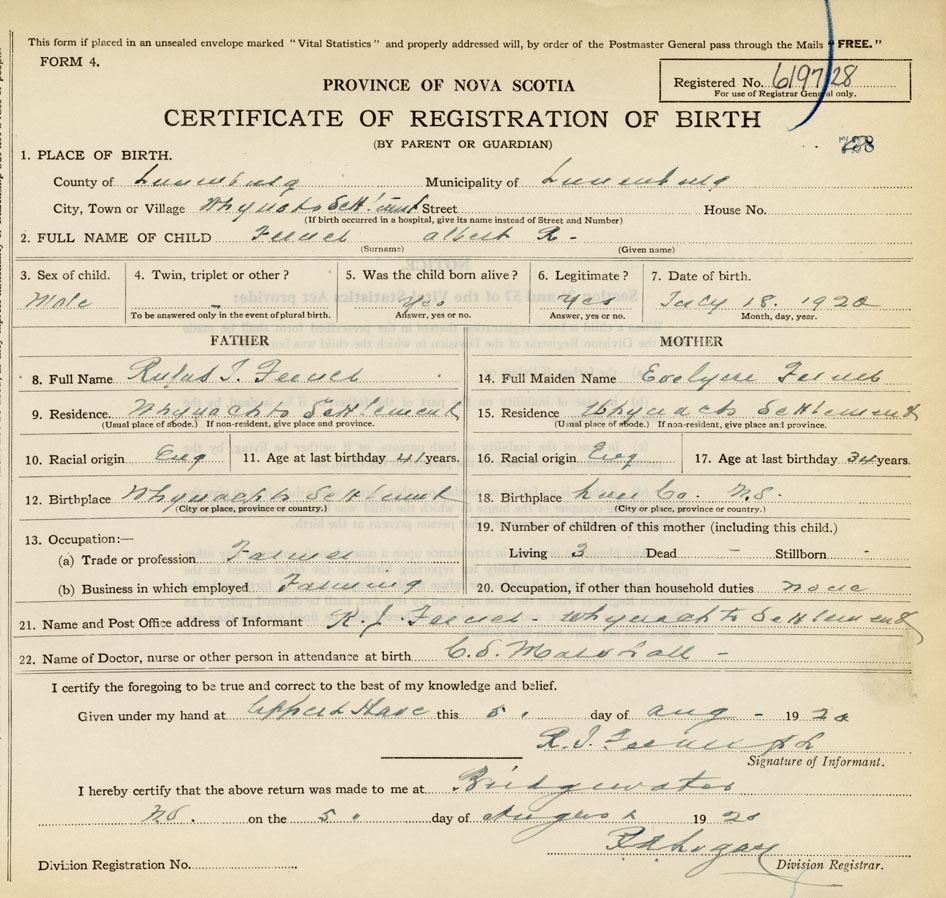 This form if placed in an unsealed envelope marked "Vital Statistics" and properly addressed will, by order of the Postmaster General pass through the Mails "FREE."
FORM 4.
Registered No. 6197/28
For use of Registrar General only.
PROVINCE OF NOVA SCOTIA
CERTIFICATE OF REGISTRATION OF BIRTH
(BY PARENT OR GUARDIAN)
1. PLACE OF BIRTH.
County of Lunenburg Municipality of Lunenburg
City, Town or Village Whynots Settlment Street House No.
(If birth occurred in a hospital, give its name instead of Street and Number)
2. FULL NAME OF CHILD Feener albert R.
(Surname) (Given name)
3. Sex of child. 4. Twin, triplet or other? 5. Was the child born alive? 6. Legitimate? 7. Date of birth.
Male - Yes Yes July 18. 1920
To be answered only in the event of plural birth. Answer, yes or no. Answer, yes or no. Month, day, year.
FATHER MOTHER
8. Full Name Rufus J. Feener 14. Full Maiden Name Evelyn Feener
9. Residence. Whynachts Settlement 15. Residence Whynachts Settlement
(Usual place of abode.) If non-resident, give place and province. (Usual place of abode.) If non-resident, give place and province.
10. Racial origin Eng 11. Age at last birthday 41 years. 16. Racial origin Eng 17. Age at last birthday 34 years.
12. Birthplace Whynachts Settlment 18. Birthplace Lun Co. N.S.
(City or place, province or country.) (City or place, province or country.)
19. Number of children of this mother (including this child.)
13. Occupation:—
(a) Trade or profession Farmer Living 3 Dead - Stillborn -
(b) Business in which employed Farming 20. Occupation, if other than household duties none
21. Name and Post Office address of Informant R. J. Feener - Whynachts Settlement
22. Name of Doctor, nurse or other person in attendance at birth C. S. Marshall -
I certify the foregoing to be true and correct to the best of my knowledge and belief.
Given under my hand at this 5. day of aug - 1920
R. J. Feener
Signature of Informant.
I hereby certify that the above return was made to me at Bridgewater
N.S. on the 5 day of August 1920
Division Registration No. Division Registrar.